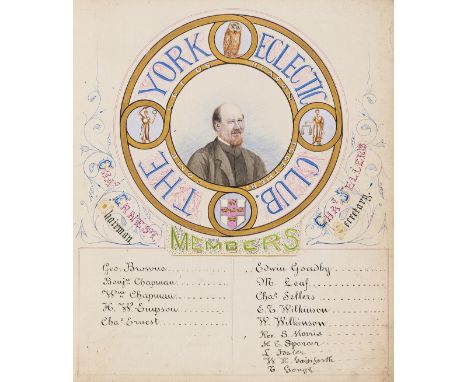 THE YORK ECLECTIC CLUB
Chas ERNEST
Chairman
Chas SELLERS
Secretary.
MEMBERS
Geo. Browne
Benjn. Chapman
Wm. Chapman
H. W. Empson
Chas. Ernest
Edwin Goadby
M. Leaf
Chas. Sellers
E. T. Wilkinson
W. Wilkinson
Rev. S. Morris
H. C. Spencer
L. Foster
T. Gough